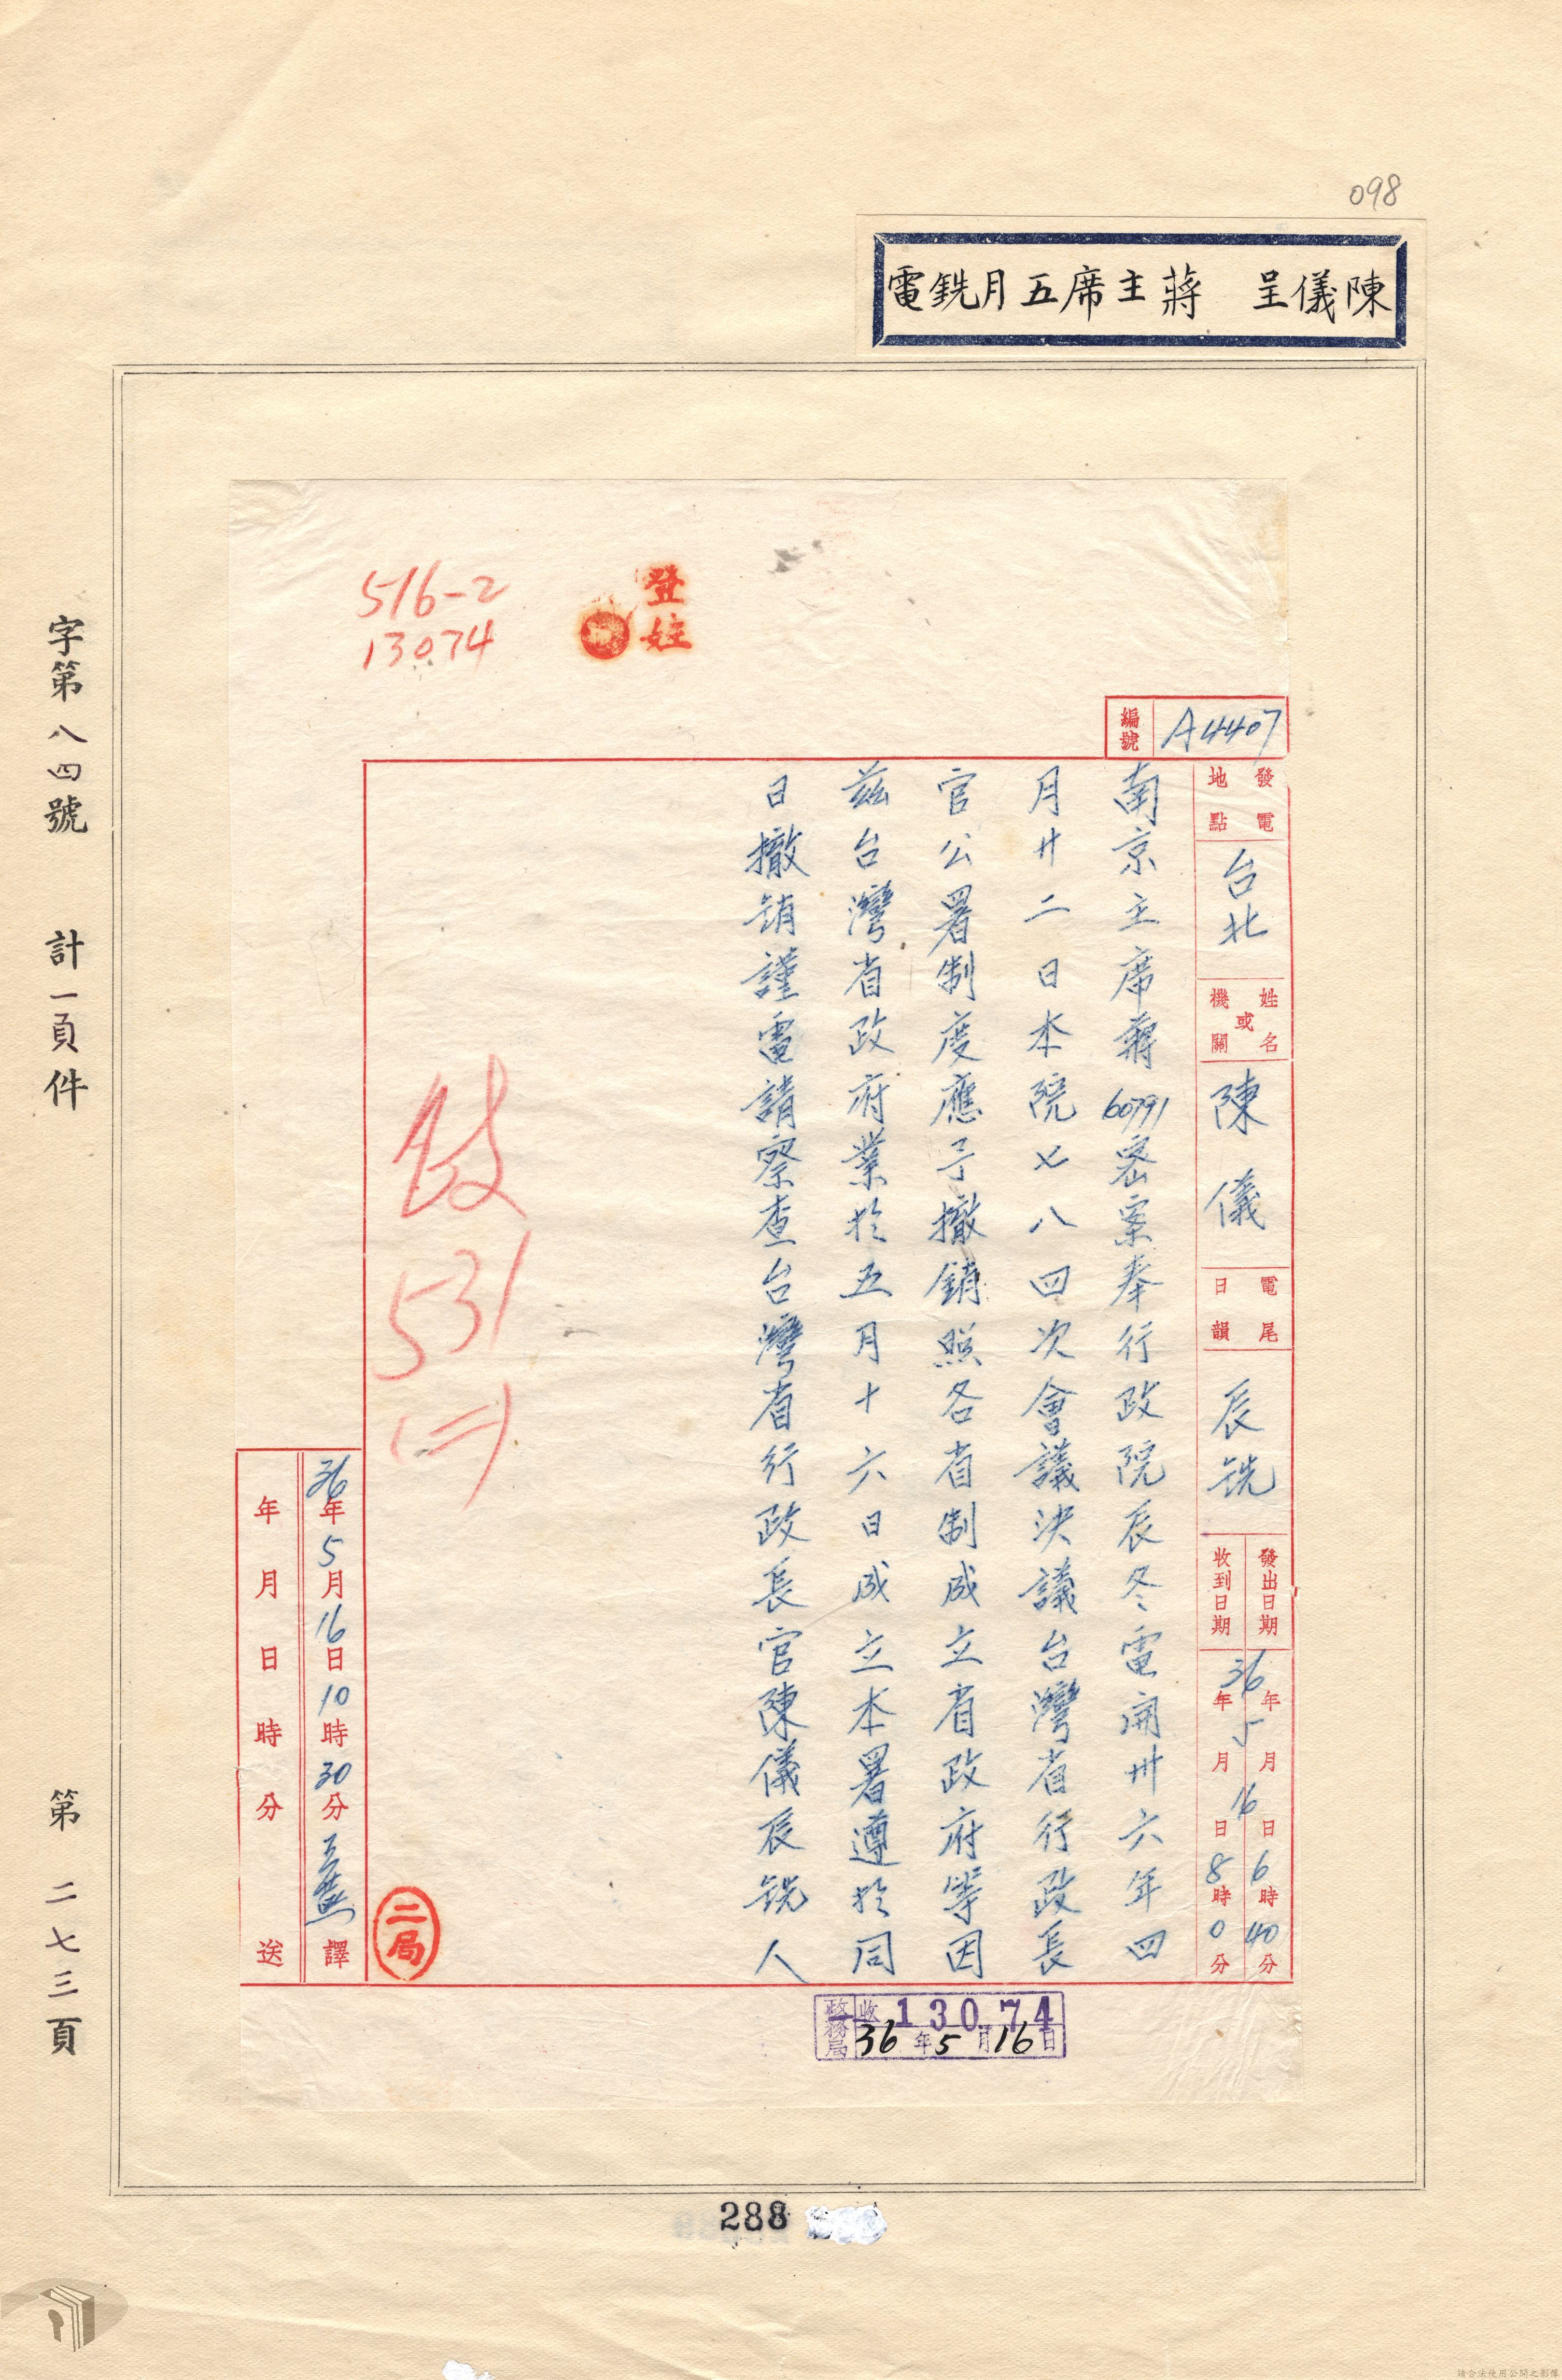 098
陳儀呈　蔣主席五月銑電
516-2
13074
登註
編號 A4407
發電地點 台北
姓名或機關 陳儀
電尾日韻 辰銑
發出日期 36年5月16日6時40分
收到日期 年月日8時0分
南京主席蔣60791密案奉行政院辰冬電開卅六年四
月廿二日本院七八四次會議決議台灣省行政長
官公署制度應予撤銷照各省制成立省政府等因
茲台灣省政府業於五月十六日成立本署遵於同
日撤銷謹電請察查台灣省行政長官陳儀辰銑人
531
(二)
二局
36年5月16日10時30分 譯
年月日時分 送
政務局 收 13074
36年5月16日
字第八四號　計一頁件　第二七三頁
288
請合法使用公開之影像